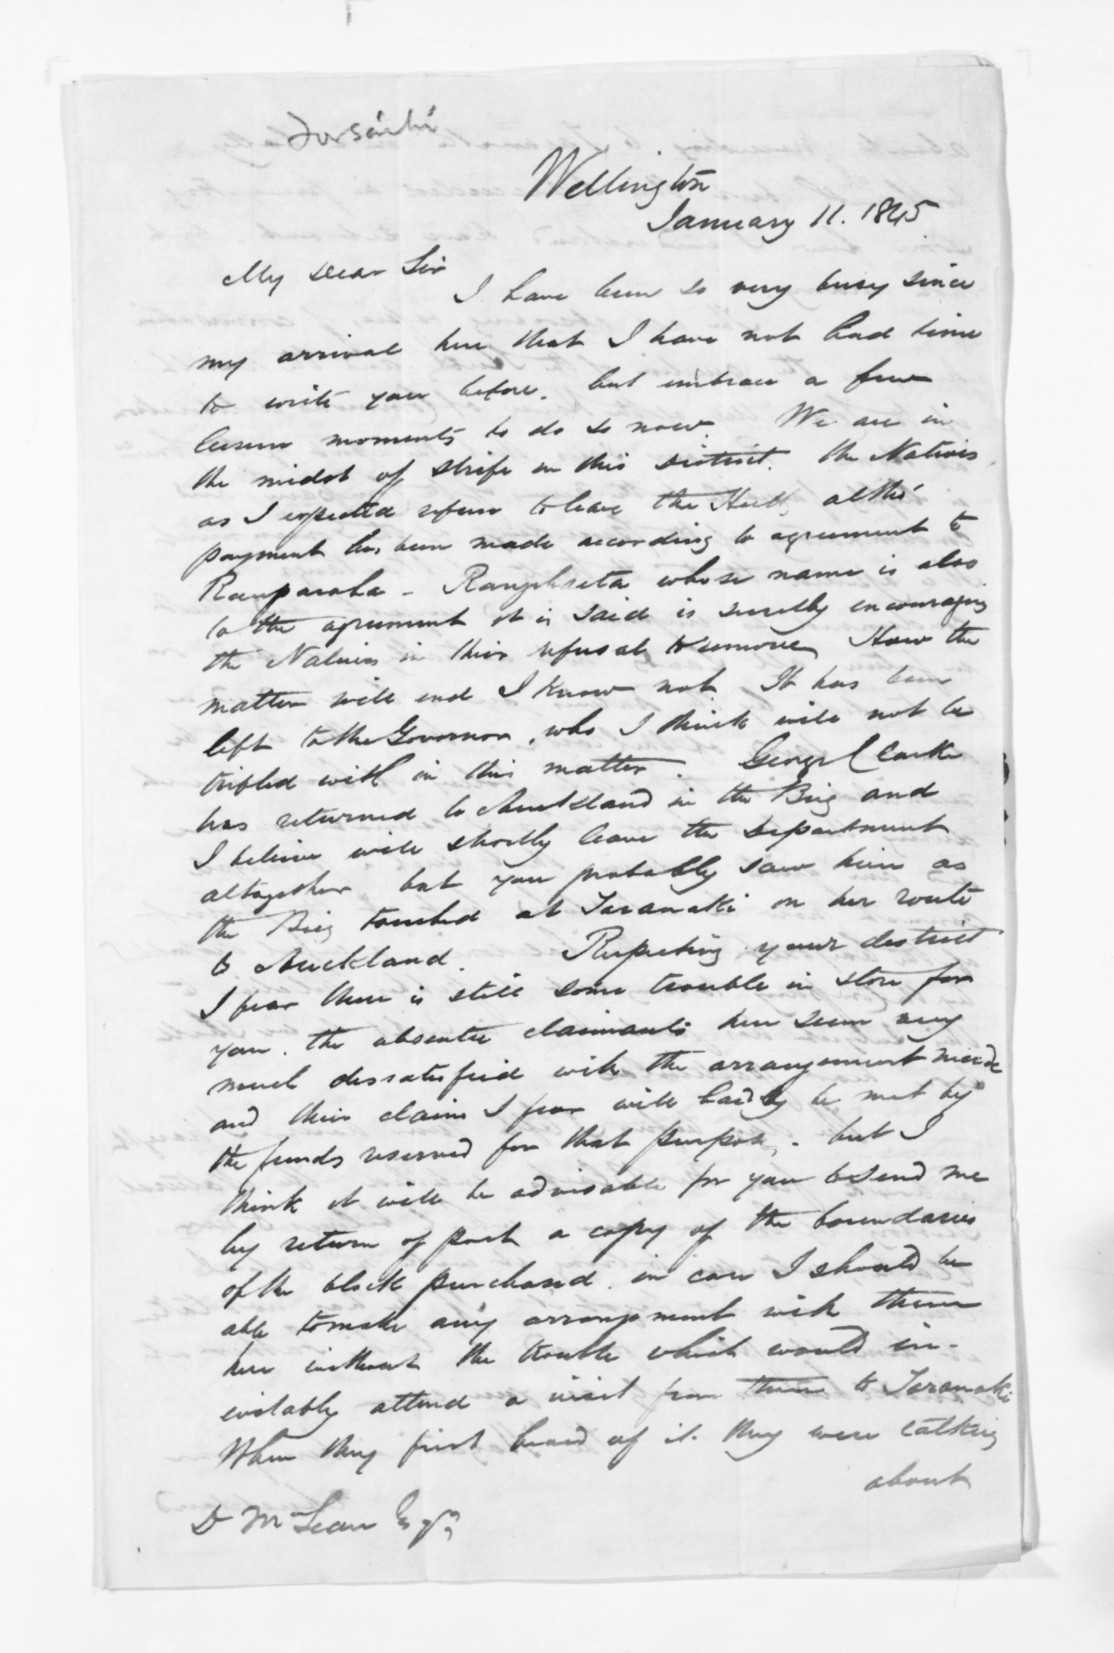 Wellington
January 11. 1845
My Dear Sir
I have been so very busy since
my arrival here that I have not had time
to write you before. but embrace a few
leisure moments to do so now. We are in
the midst of strife in this District. the Natives
as I expected refuse to leave the Hutt, altho'
payment has been made according to agreement to
Rauparaha - Rangihaeta whose name is also
to the agreement it is said is secretly encouraging
the Natives in their refusal to remove How the
matter will end I know not. It has been
left to the Governor, who I think will not be
trifled with in this matter. George Clarke
has returned to Auckland in the Brig and
I believe will shortly leave the Department
altogether but you probably saw him as
the Brig touched at Taranaki on her route
to Auckland. Respecting your district
I fear there is still some trouble in store for
you. the absentee claimants here seem very
much dissatisfied with the arrangement made
and their claims I fear will badly be met by
the funds reserved for that purpose, - but I
think it will be advisable for you to send me
by return of post a copy of the boundaries
of the block purchased. in case I should be
able to make any arrangement with them
here without the trouble which would in-
evitably attend a visit from them to Taranaki
When they first heard of it. they were talking
about
D McLean Esqr